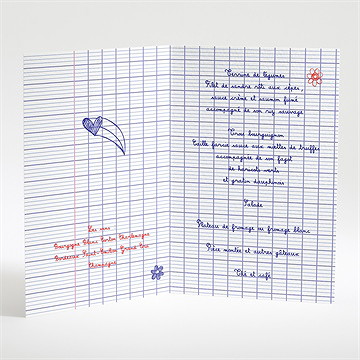 Les vins
Bourgogne Blanc Corton Charlemagne
Bordeaux Saint-Emilion Grand Cru
Champagne
Terrine de légumes
Filet de sandre rôti aux cèpes,
sauce crème et saumon fumé
accompagné de son riz sauvage
Trou bourguignon
Caille farcie sauce aux morilles de truffes
accompagnée de un fagot
de haricots verts
et gratin dauphinois
Salade
Plateau de fromage ou fromage blanc
Pièce montée et autres gâteaux
Thé et café